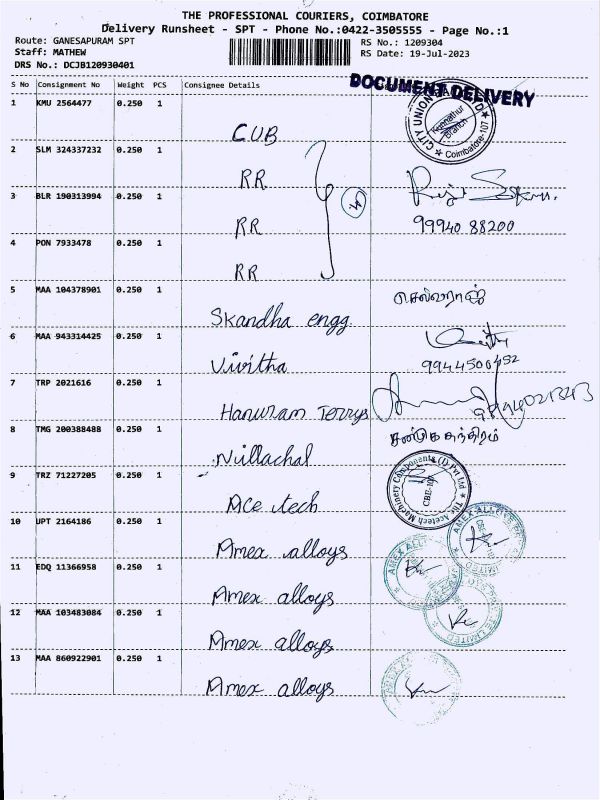 THE PROFESSIONAL COURIERS, COIMBATORE
Delivery Runsheet - SPT - Phone No.:0422-3505555 - Page No.:1
Route: GANESAPURAM SPT RS No.: 1209304
Staff: MATHEW RS Date: 19-Jul-2023
DRS No.: DCJB120930401
S No Consignment No Weight PCS Consignee Details
DOCUMENT DELIVERY
1 KMU 2564477 0.250 1
CUB
CITY UNION
Branch
Coimbatore-107
2 SLM 324337232 0.250 1
RR
3 BLR 190313994 0.250 1
RR 99940 88200
4 PON 7933478 0.250 1
RR
5 MAA 104378901 0.250 1
Skandha engg. செல்வராஜ்
6 MAA 943314425 0.250 1
Vivitha 9944500452
7 TRP 2021616 0.250 1
Hanuram Terrys
8 TMG 200388488 0.250 1
Nillachal
9 TRZ 71227205 0.250 1
Ace tech
The Acetech Machinery Components (I) Pvt Ltd
10 UPT 2164186 0.250 1
Amex alloys AMEX ALLOYS
11 EDQ 11366958 0.250 1
Amex alloys AMEX ALLOYS
12 MAA 103483084 0.250 1
Amex alloys LIMITED
13 MAA 860922901 0.250 1
Amex alloys AMEX